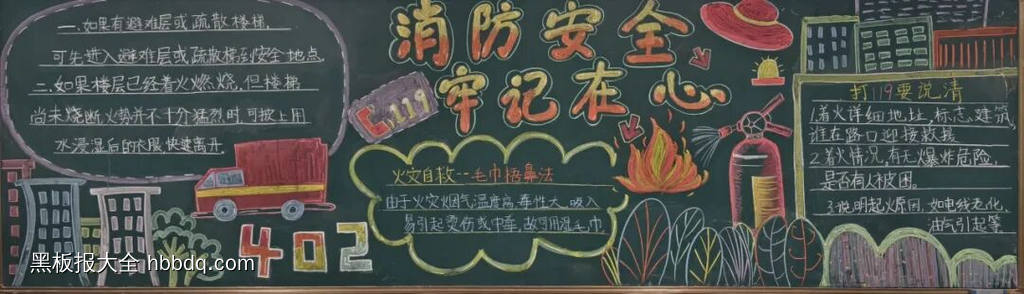 一.如果有避难层或疏散楼梯,
可先进入避难层或疏散梯到安全地点.
二.如果楼层已经着火燃烧,但楼梯
尚未烧断火势并不十分猛烈时,可披上用
水浸湿后的衣服快速离开.
消防安全
牢记在心
119
火灾自救--毛巾捂鼻法
由于火灾烟气温度高,毒性大,吸入
易引起烫伤或中毒,故可用湿毛巾
402
打119要说清
1.着火详细地址,标志,建筑,
谁在路口迎接救援
2.着火情况,有无爆炸危险,
是否有人被困.
3.说明起火原因,如电线老化,
油气引起等
黑板报大全 hbbdq.com